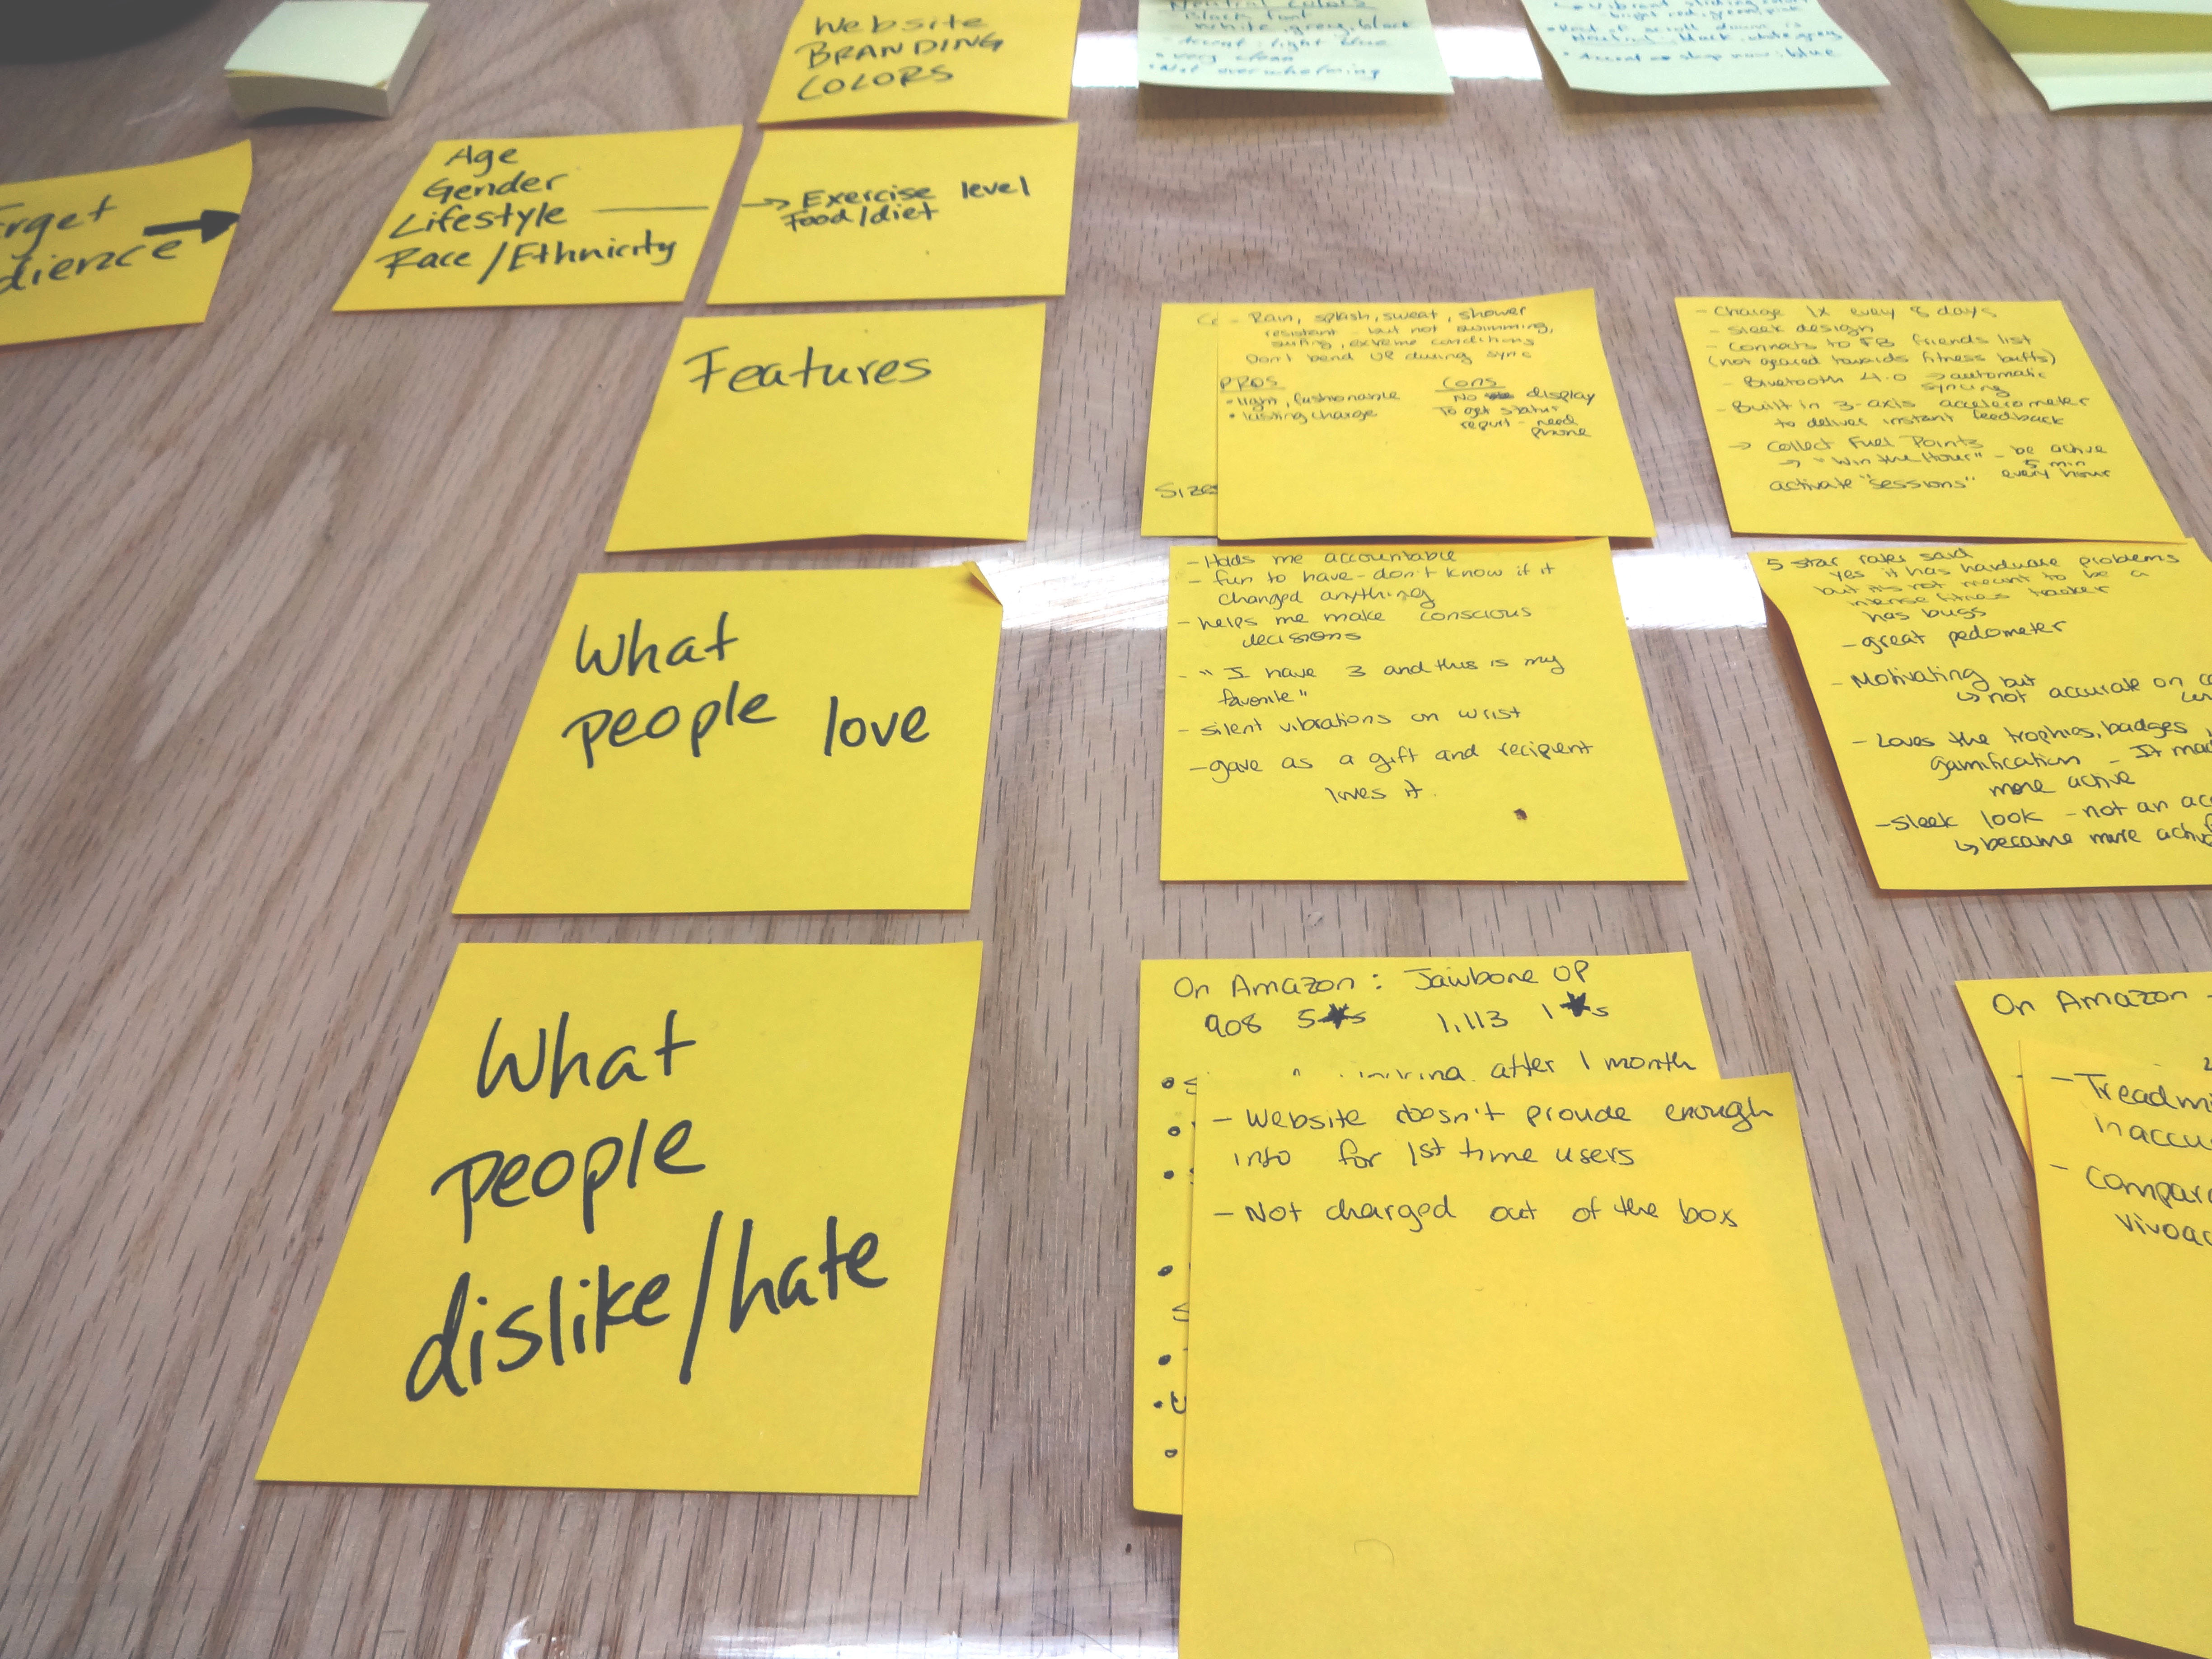 Website
BRANDING
COLORS
Neutral Colors
Black font
White, grey, black
Accent: light blue
• very clean
• Not overwhelming
Neutral: black, white, grey
• Accent → shop now: blue
Age
Gender
Lifestyle
Race/Ethnicity
→ Exercise level
Food/diet
Features
- Rain, splash, sweat, shower
resistant - but not swimming,
surfing, extreme conditions
Don't bend UP during sync
PROS
- light, fashionable
• lasting charge
Cons
No display
To get status
report - need
phone
Sizes
- Charge 1x every 8 days
- Sleek design
- Connects to FB friends list
(not geared towards fitness buffs)
- Bluetooth 4.0 → automatic
syncing
- Built in 3-axis accelerometer
to deliver instant feedback
→ Collect Fuel Points
→ "Win the Hour" - be active
5 min
every hour
activate "sessions"
What
people love
- Holds me accountable
- fun to have - don't know if it
changed anything
- helps me make conscious
decisions
- "I have 3 and this is my
favorite"
- silent vibrations on wrist
- gave as a gift and recipient
loves it.
5 star rates said
yes it has hardware problems
but it's not meant to be a
intense fitness tracker
has bugs
- great pedometer
- Motivating but
↳ not accurate on
- Loves the trophies, badges
gamification - It
more active
- sleek look - not an
↳ became more
What
people
dislike/hate
On Amazon: Jawbone UP
908 5★s 1,113 1★s
after 1 month
- Website doesn't provide enough
info for 1st time users
- Not charged out of the box
On Amazon -